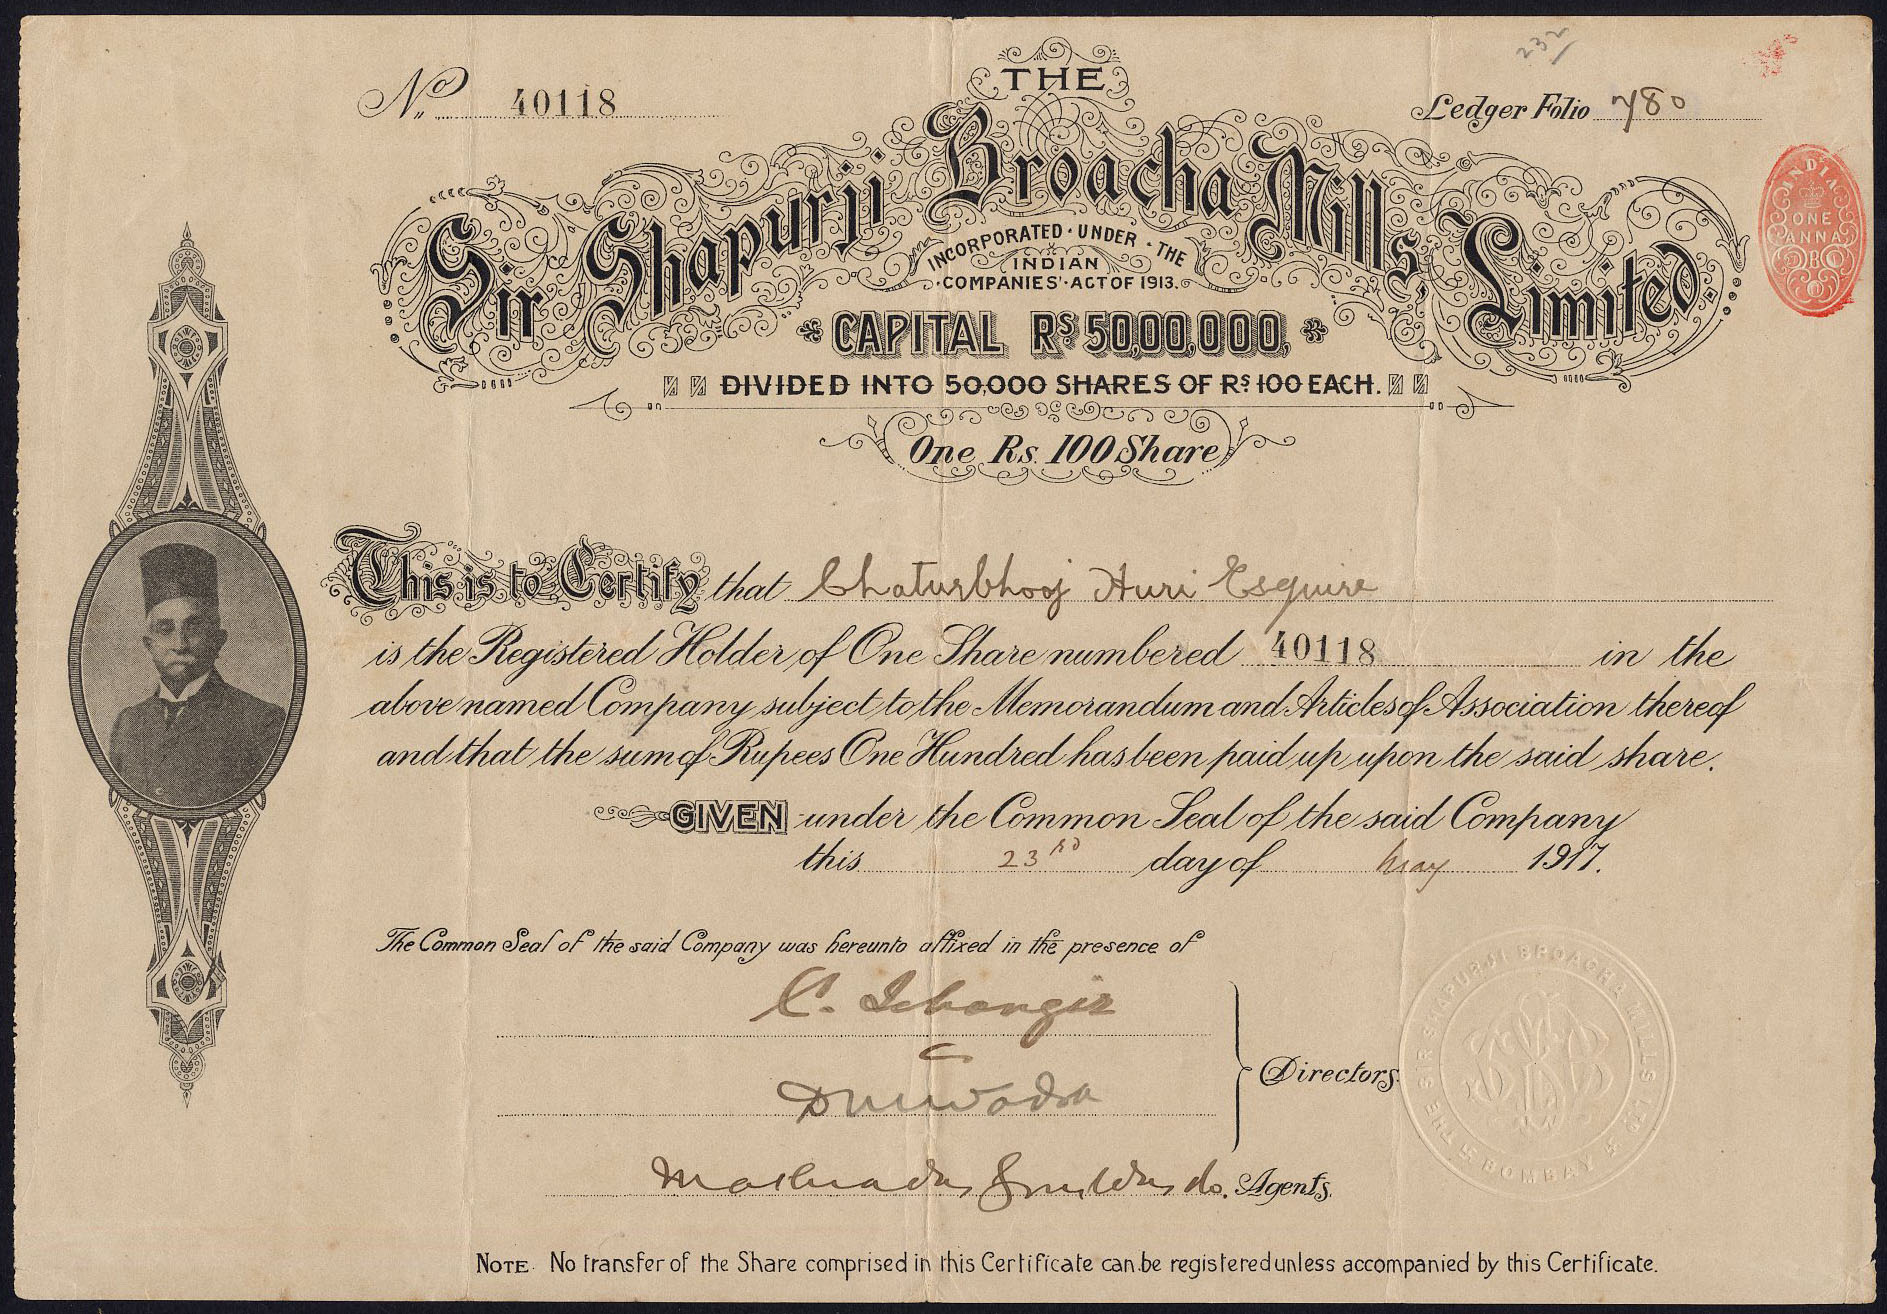 232
No. 40118
Ledger Folio 780
THE
Sir Shapurji Broacha Mills, Limited
INCORPORATED · UNDER · THE
INDIAN
· COMPANIES' · ACT OF 1913.
CAPITAL Rs 50,00,000,
DIVIDED INTO 50,000 SHARES OF Rs 100 EACH.
One Rs. 100 Share
INDIA
ONE
ANNA
This is to Certify that Chaturbhooj Huri Esquire
is the Registered Holder of One Share numbered 40118 in the
above named Company subject to the Memorandum and Articles of Association thereof
and that the sum of Rupees One Hundred has been paid up upon the said share.
GIVEN under the Common Seal of the said Company
this 23rd day of May 1917.
The Common Seal of the said Company was hereunto affixed in the presence of
C. Jehangir
Directors.
Co. Agents.
THE SIR SHAPURJI BROACHA MILLS LD
BOMBAY
NOTE. No transfer of the Share comprised in this Certificate can be registered unless accompanied by this Certificate.